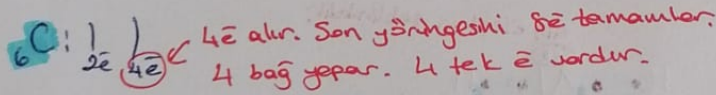 ₆C: ) ) 4ē alır. Son yörüngesini 8ē tamamlar.
2ē 4ē < 4 bağ yapar. 4 tek ē vardır.